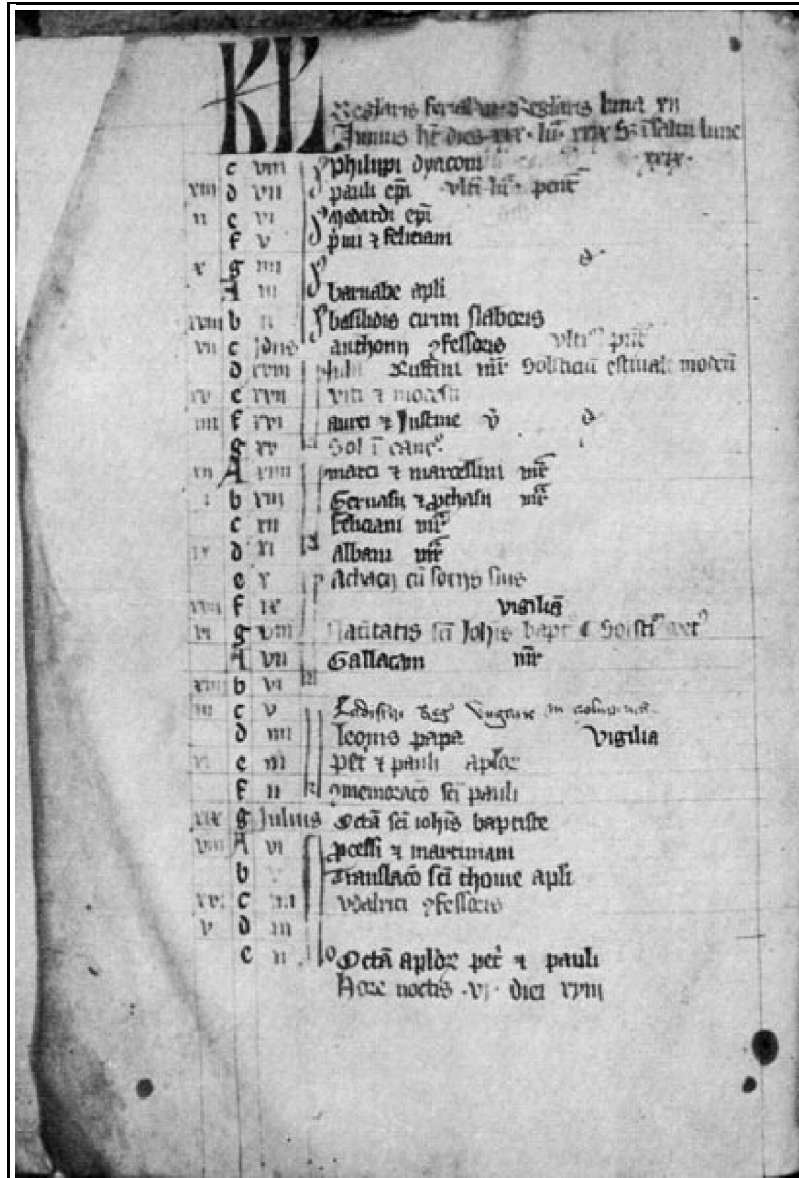 KL
Regularis feriał Regularis luna xii
Junius ht dies xxx lu xxix lune
c viii philippi dyaconi xxix
xiii d vii pauli epi vlti lu penlt
ii e vi Medardi epi
f v p̄mi ⁊ feliciani
x g iiii
A iii barnabe apli
xviii b ii basilidis cirini naboris
vii c Idus anthonii ꝯfessoris vlti
d xviii Ruffini mr Solsticiu estiuale
xv e xvii viti ⁊ modesti
iiii f xvi aurei ⁊ Justine v
g xv Sol i canc
xii A xiiii marci ⁊ marcelliani mr
i b xiii Geruasii ⁊ ꝓthasii mr
c xii feliciani mr
ix d xi albani mr
e x Achacii cu sociis suis
xvii f ix vigilia
vi g viii Natiuitatis sci Johis bapt
A vii Gallicani mr
xiiii b vi
iii c v Ladislai Reg Vngarie in
d iiii leonis papa vigilia
xi e iii pet ⁊ pauli aploꝝ
f ii ꝯmemoraco sci pauli
xix g Julius Octa sci iohis baptiste
viii A vi ꝓcessi ⁊ martiniani
b v Translaco sci thome apli
xvi c iiii vdalrici ꝯfessoris
v d iii
e ii Octa aploꝝ pet ⁊ pauli
hore noctis vi diei xviii